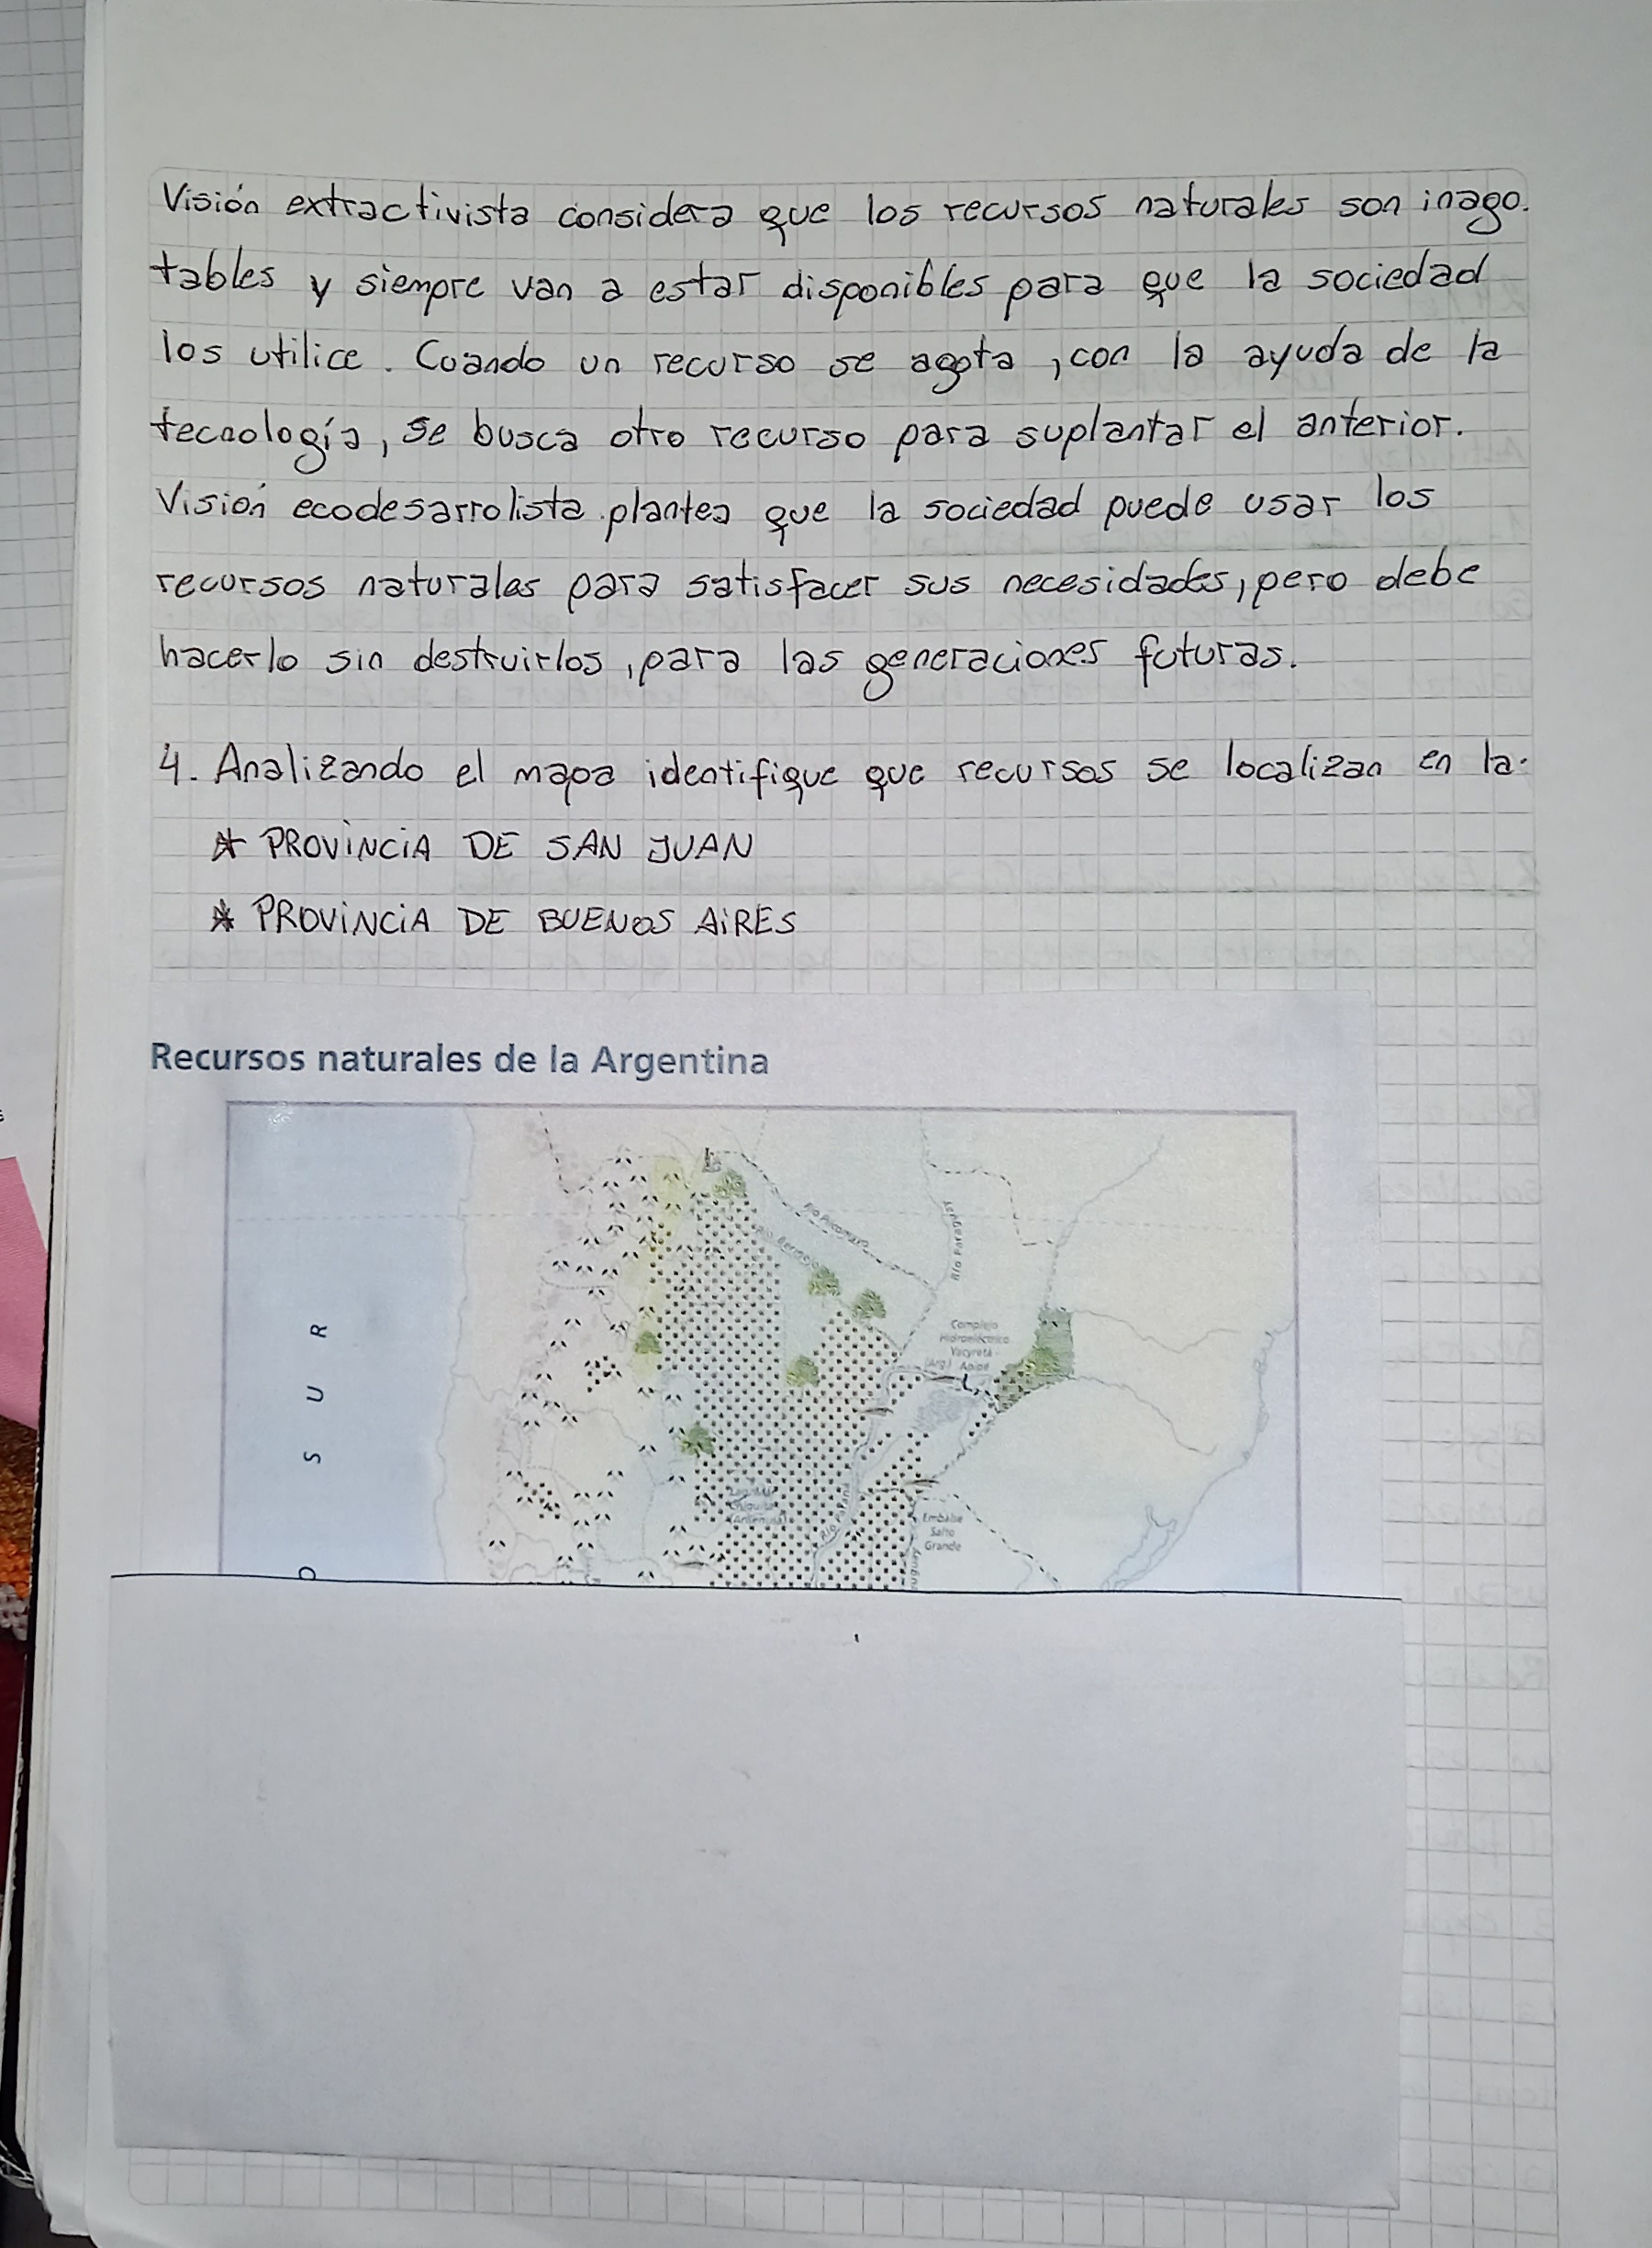 Visión extractivista considera que los recursos naturales son inago.
tables y siempre van a estar disponibles para que la sociedad
los utilice. Cuando un recurso se agota, con la ayuda de la
tecnología, se busca otro recurso para suplantar el anterior.
Visión ecodesarrolista plantea que la sociedad puede usar los
recursos naturales para satisfacer sus necesidades, pero debe
hacerlo sin destruirlos, para las generaciones futuras.
4. Analizando el mapa identifique que recursos se localizan en la:
* PROVINCIA DE SAN JUAN
* PROVINCIA DE BUENOS AIRES
Recursos naturales de la Argentina
Río Pilcomayo
Río Bermejo
Río Paraguay
Complejo
Hidroeléctrico
Yacyretá -
(Arg.) Apipé
S U R
Laguna Mar
Chiquita
(Argentina)
Río Paraná
Embalse
Salto
Grande
O